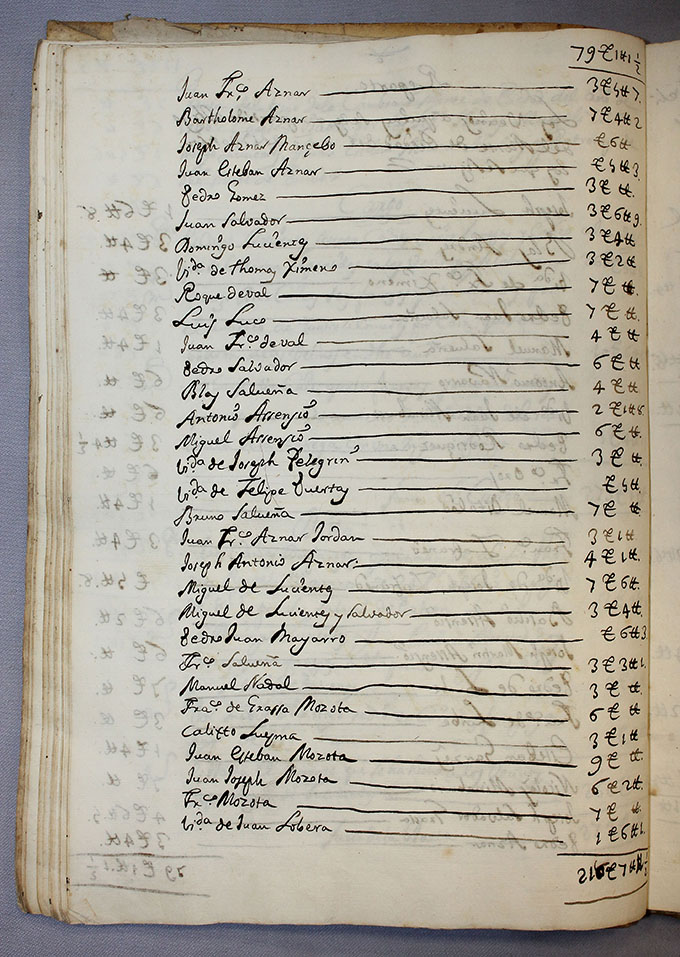 79 £ 1 tt 1 ½
Juan Fr.co Aznar 3 £ 5 tt 7.
Bartholome Aznar 7 £ 4 tt 2
Joseph Aznar Mançebo £ 6 tt
Juan Esteban Aznar £ 5 tt 3.
Pedro Gomez 3 £ tt.
Juan Salvador 3 £ 6 tt 9.
Domingo Lucientes 3 £ 4 tt
Vi.da de thomas Ximeno 3 £ 2 tt
Roque deval 7 £ tt.
Luis Luco 7 £ tt.
Juan Fr.co deval 4 £ tt
Pedro Salvador 6 £ tt
Blas Salueña 4 £ tt.
Antonio Assensio 2 £ 1 tt 8
Miguel Assensio 6 £ tt.
Vi.da de Joseph Pelegrin 3 £ tt
Vi.da de Felipe Puertas £ 5 tt.
Bruno Salueña 7 £ tt.
Juan Fr.co Aznar Jordan 3 £ 1 tt
Joseph Antonio Aznar 4 £ 1 tt.
Miguel de Lucientes 7 £ 6 tt.
Miguel de Lucientes y Salvador 3 £ 4 tt.
Pedro Juan Mayarro £ 6 tt 3
Fr.co Salueña 3 £ 3 tt 1.
Manuel Nadal 3 £ tt.
Fra.co de Grassa Mozota 6 £ tt
Calixto Luesma 3 £ 1 tt
Juan Esteban Mozota 9 £ tt.
Juan Joseph Mozota 6 £ 2 tt.
Fr.co Mozota 7 £ tt
Vi.da de Juan Lobera 1 £ 6 tt 1.